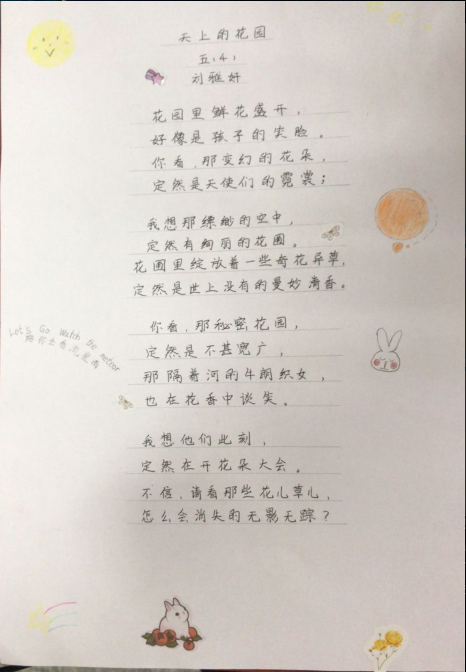 天上的花园
五.4.
刘雅妍
花园里鲜花盛开，
好像是孩子的笑脸。
你看，那变幻的花朵，
定然是天使们的霓裳；
我想那缥缈的空中，
定然有绚丽的花园。
花园里绽放着一些奇花异草，
定然是世上没有的曼妙清香。
你看，那秘密花园，
定然是不甚宽广，
那隔着河的牛郎织女，
也在花香中谈笑。
我想他们此刻，
定然在开花朵大会。
不信，请看那些花儿草儿，
怎么会消失的无影无踪？
Let's Go Watch the meteor
陪你去看流星雨